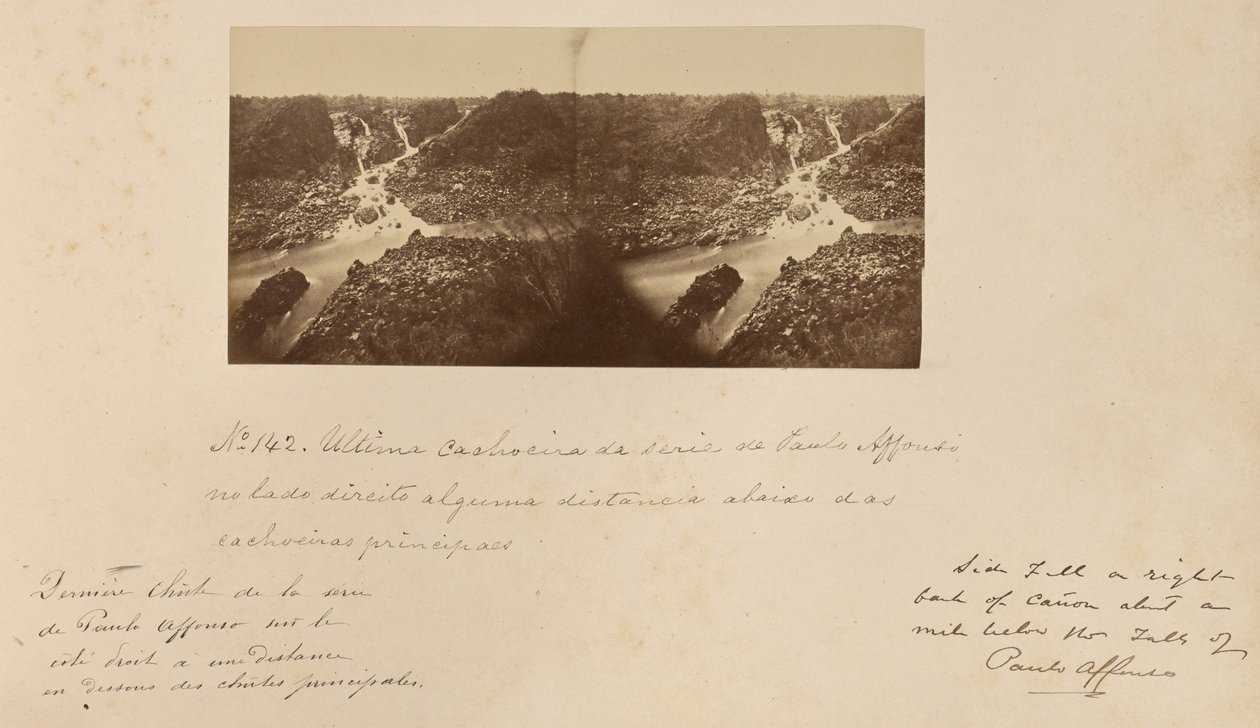 No 142. Ultima cachoeira da serie de Paulo Affonso
no lado direito alguma distancia abaixo das
cachoeiras principaes
Dernière Chûte de la serie
de Paulo Affonso sur le
côté droit à une Distance
en dessous des chûtes principales.
Side Fall on right
bank of cañon about a
mile below the Falls of
Paulo Affonso